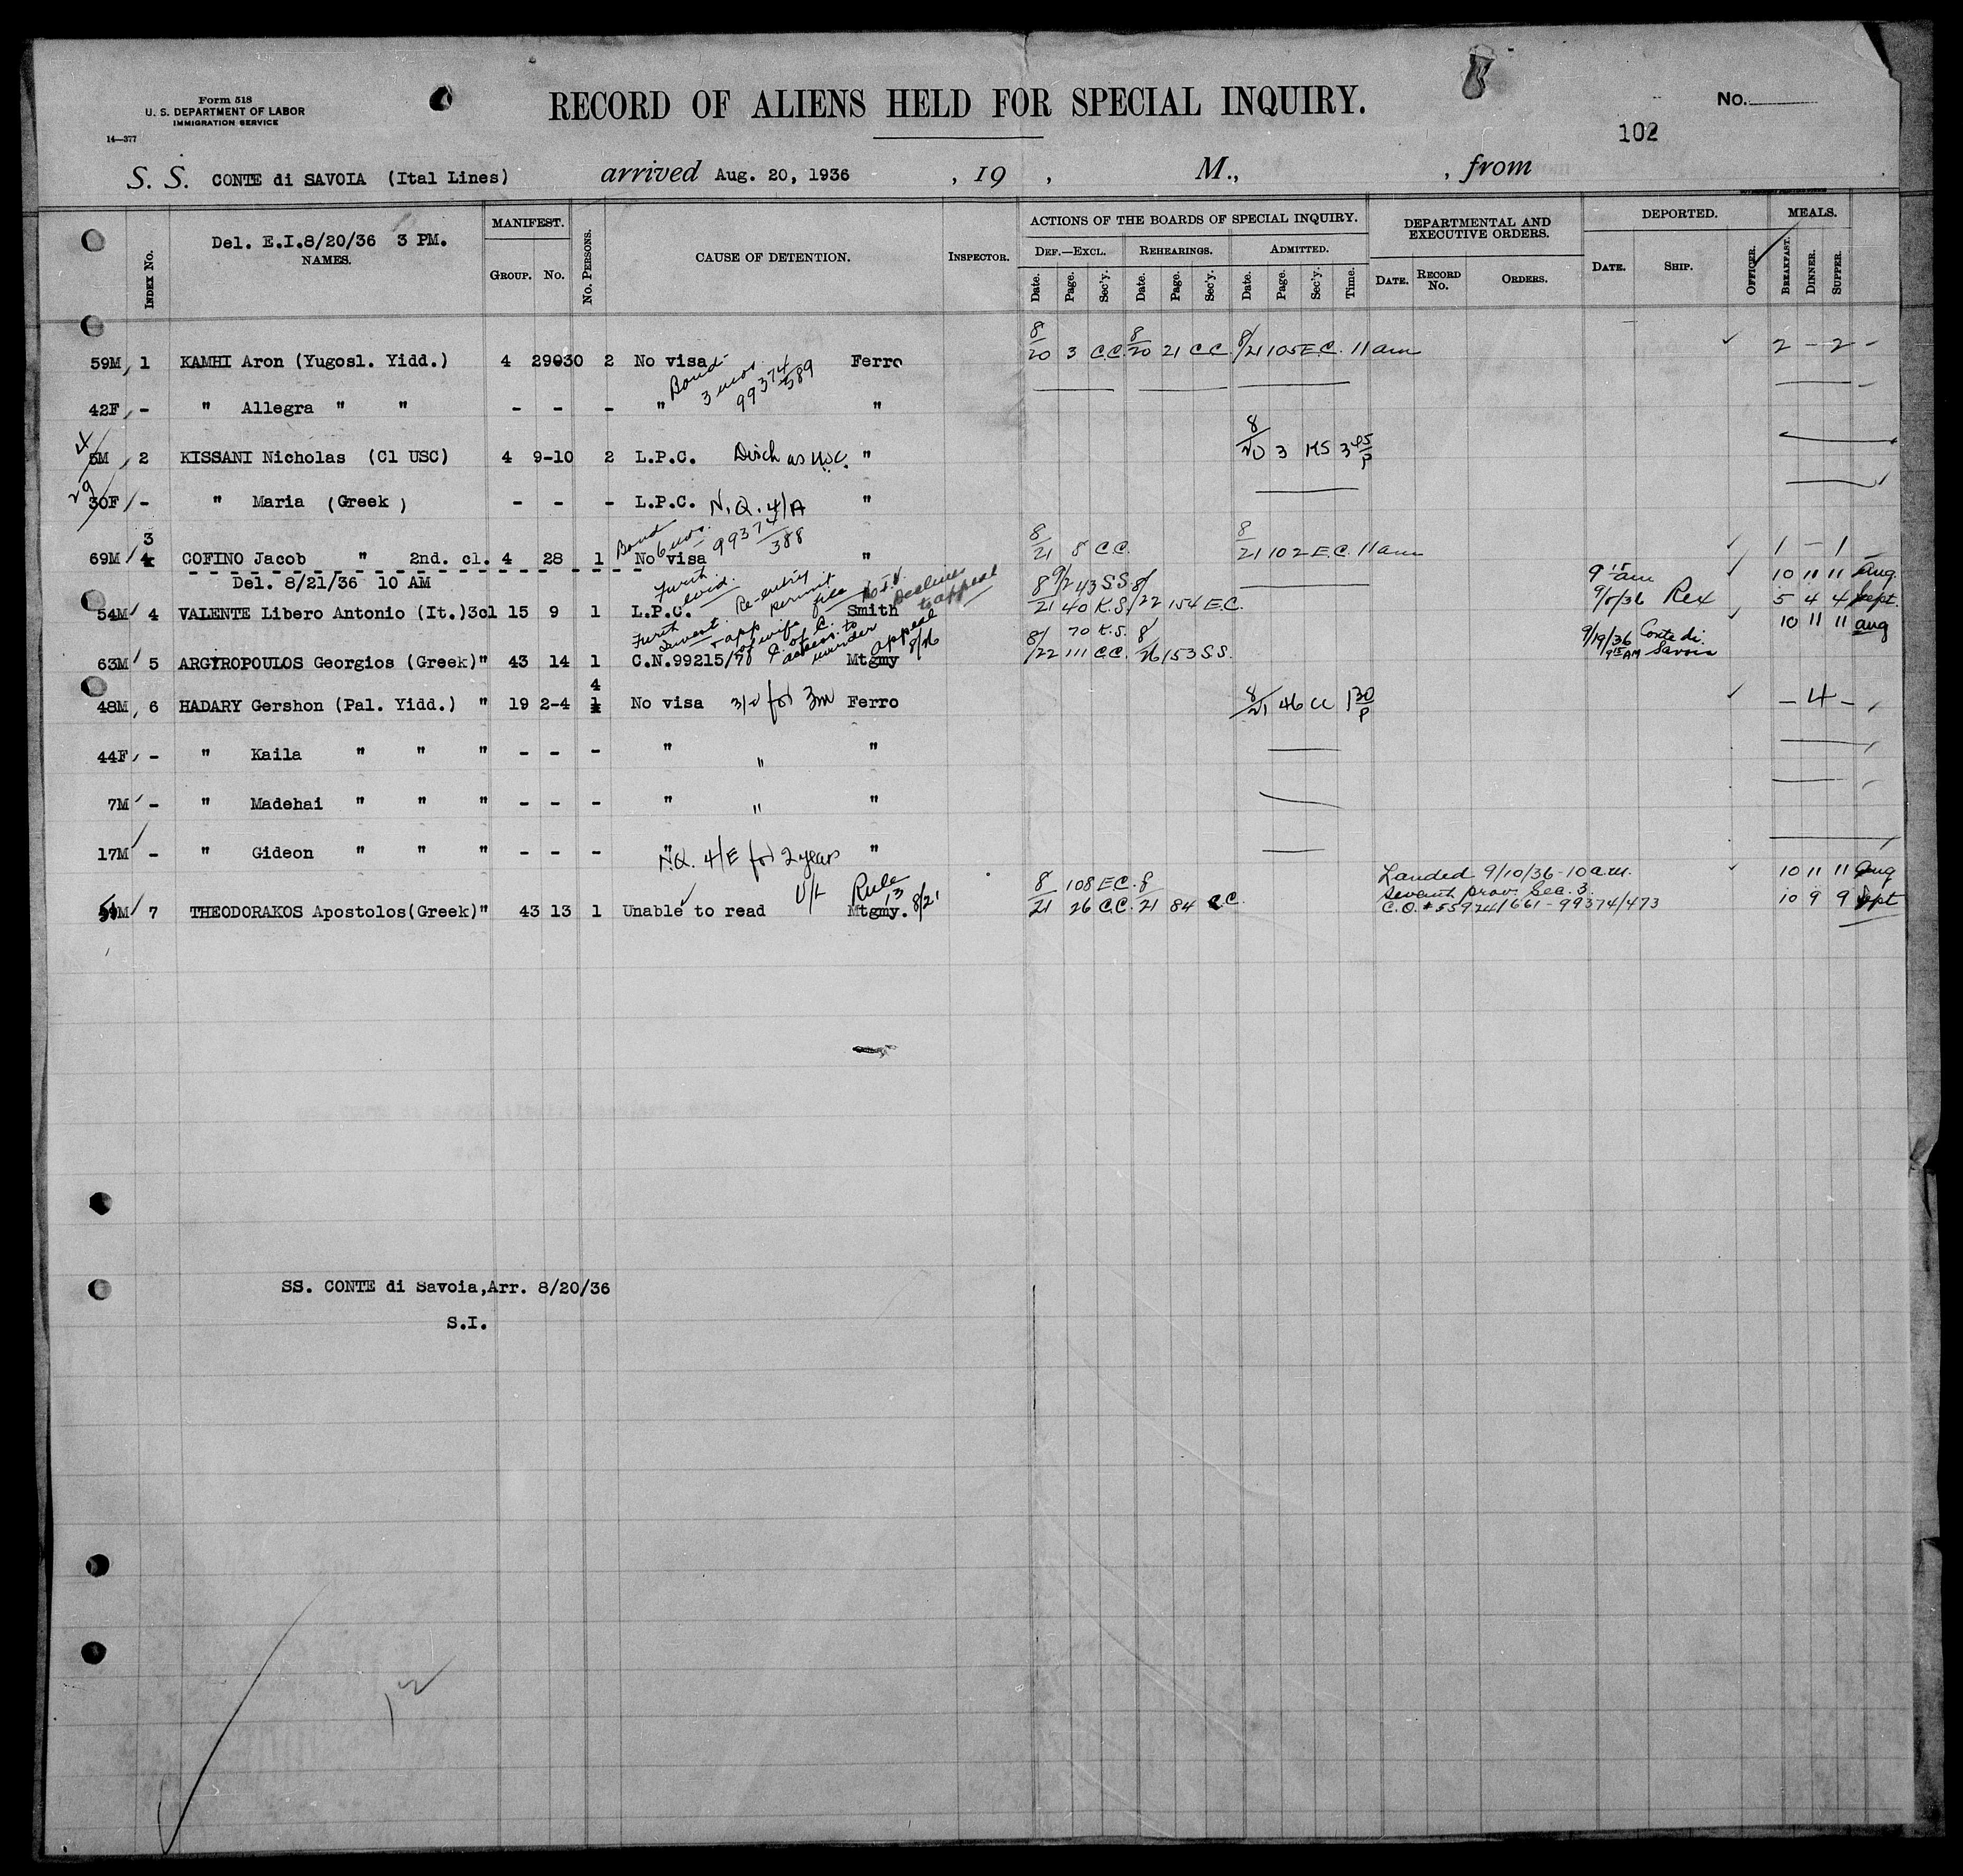 Form 518
U. S. DEPARTMENT OF LABOR
IMMIGRATION SERVICE
14—377
RECORD OF ALIENS HELD FOR SPECIAL INQUIRY.
No.
102
S. S. CONTE di SAVOIA (Ital Lines) arrived Aug. 20, 1936 , 19 , M., , from
Del. E.I.8/20/36 3 PM.
INDEX No. NAMES. MANIFEST. GROUP. No. No. PERSONS. CAUSE OF DETENTION. INSPECTOR. ACTIONS OF THE BOARDS OF SPECIAL INQUIRY. DEPARTMENTAL AND EXECUTIVE ORDERS. DEPORTED. MEALS.
DEF.—EXCL. REHEARINGS. ADMITTED.
Date. Page. Sec'y. Date. Page. Sec'y. Date. Page. Sec'y. Time. DATE. RECORD No. ORDERS. DATE. SHIP. OFFICER. BREAKFAST. DINNER. SUPPER.
59M 1 KAMHI Aron (Yugosl. Yidd.) 4 29030 2 No visa Ferro 8/20 3 C.C. 8/20 21 C.C. 8/21 105 E.C. 11 am 2 - 2 -
Bond 3 mos. 99374/389
42F - " Allegra " " - - - " "
4
5M 2 KISSANI Nicholas (Cl USC) 4 9-10 2 L.P.C. Disch as USC. " 8/20 3 KS 3 45/P
29
30F - " Maria (Greek) - - - L.P.C. N.Q. 4/A "
Bond 6 mos. 99374/388
3
69M 4 COFINO Jacob " 2nd. cl. 4 28 1 No visa " 8/21 8 C.C. 8/21 102 E.C. 11 am 1 - 1 -
Del. 8/21/36 10 AM
Furth evid. Re-entry permit file Declines to appeal
54M 4 VALENTE Libero Antonio (It.)3cl 15 9 1 L.P.C. Smith 8/21 40 K.S. 9/2 43 S.S. 8/22 154 E.C. 9 15 am 9/5/36 Rex 10 11 11 Aug.
5 4 4 Sept.
Furth Invest. app of wife
63M 5 ARGYROPOULOS Georgios (Greek)" 43 14 1 C.N.99215/78 Mtgmy appeal 8/26 8/22 70 K.S. 111 C.C. 8/26 153 S.S. 9/19/36 9 15 AM Conte di Savoia 10 11 11 aug
4
48M 6 HADARY Gershon (Pal. Yidd.) " 19 2-4 1 No visa 3/2 for 3m Ferro 8/21 46 CC 1 30/P - 4 -
44F - " Kaila " " " - - - " " "
7M - " Madehai " " " - - - " " "
17M - " Gideon " " " - - - " N.Q. 4/E for 2 years "
59M 7 THEODORAKOS Apostolos(Greek)" 43 13 1 Unable to read U/L Rule 13 Mtgmy. 8/21 8/21 108 E.C. 26 C.C. 8/21 84 C.C. Landed 9/10/36-10 a.m. 10 11 11 Aug
Seventh prov. Sec. 3.
C.O. #55924/661-99374/473 10 9 9 Sept
SS. CONTE di Savoia,Arr. 8/20/36
S.I.
12